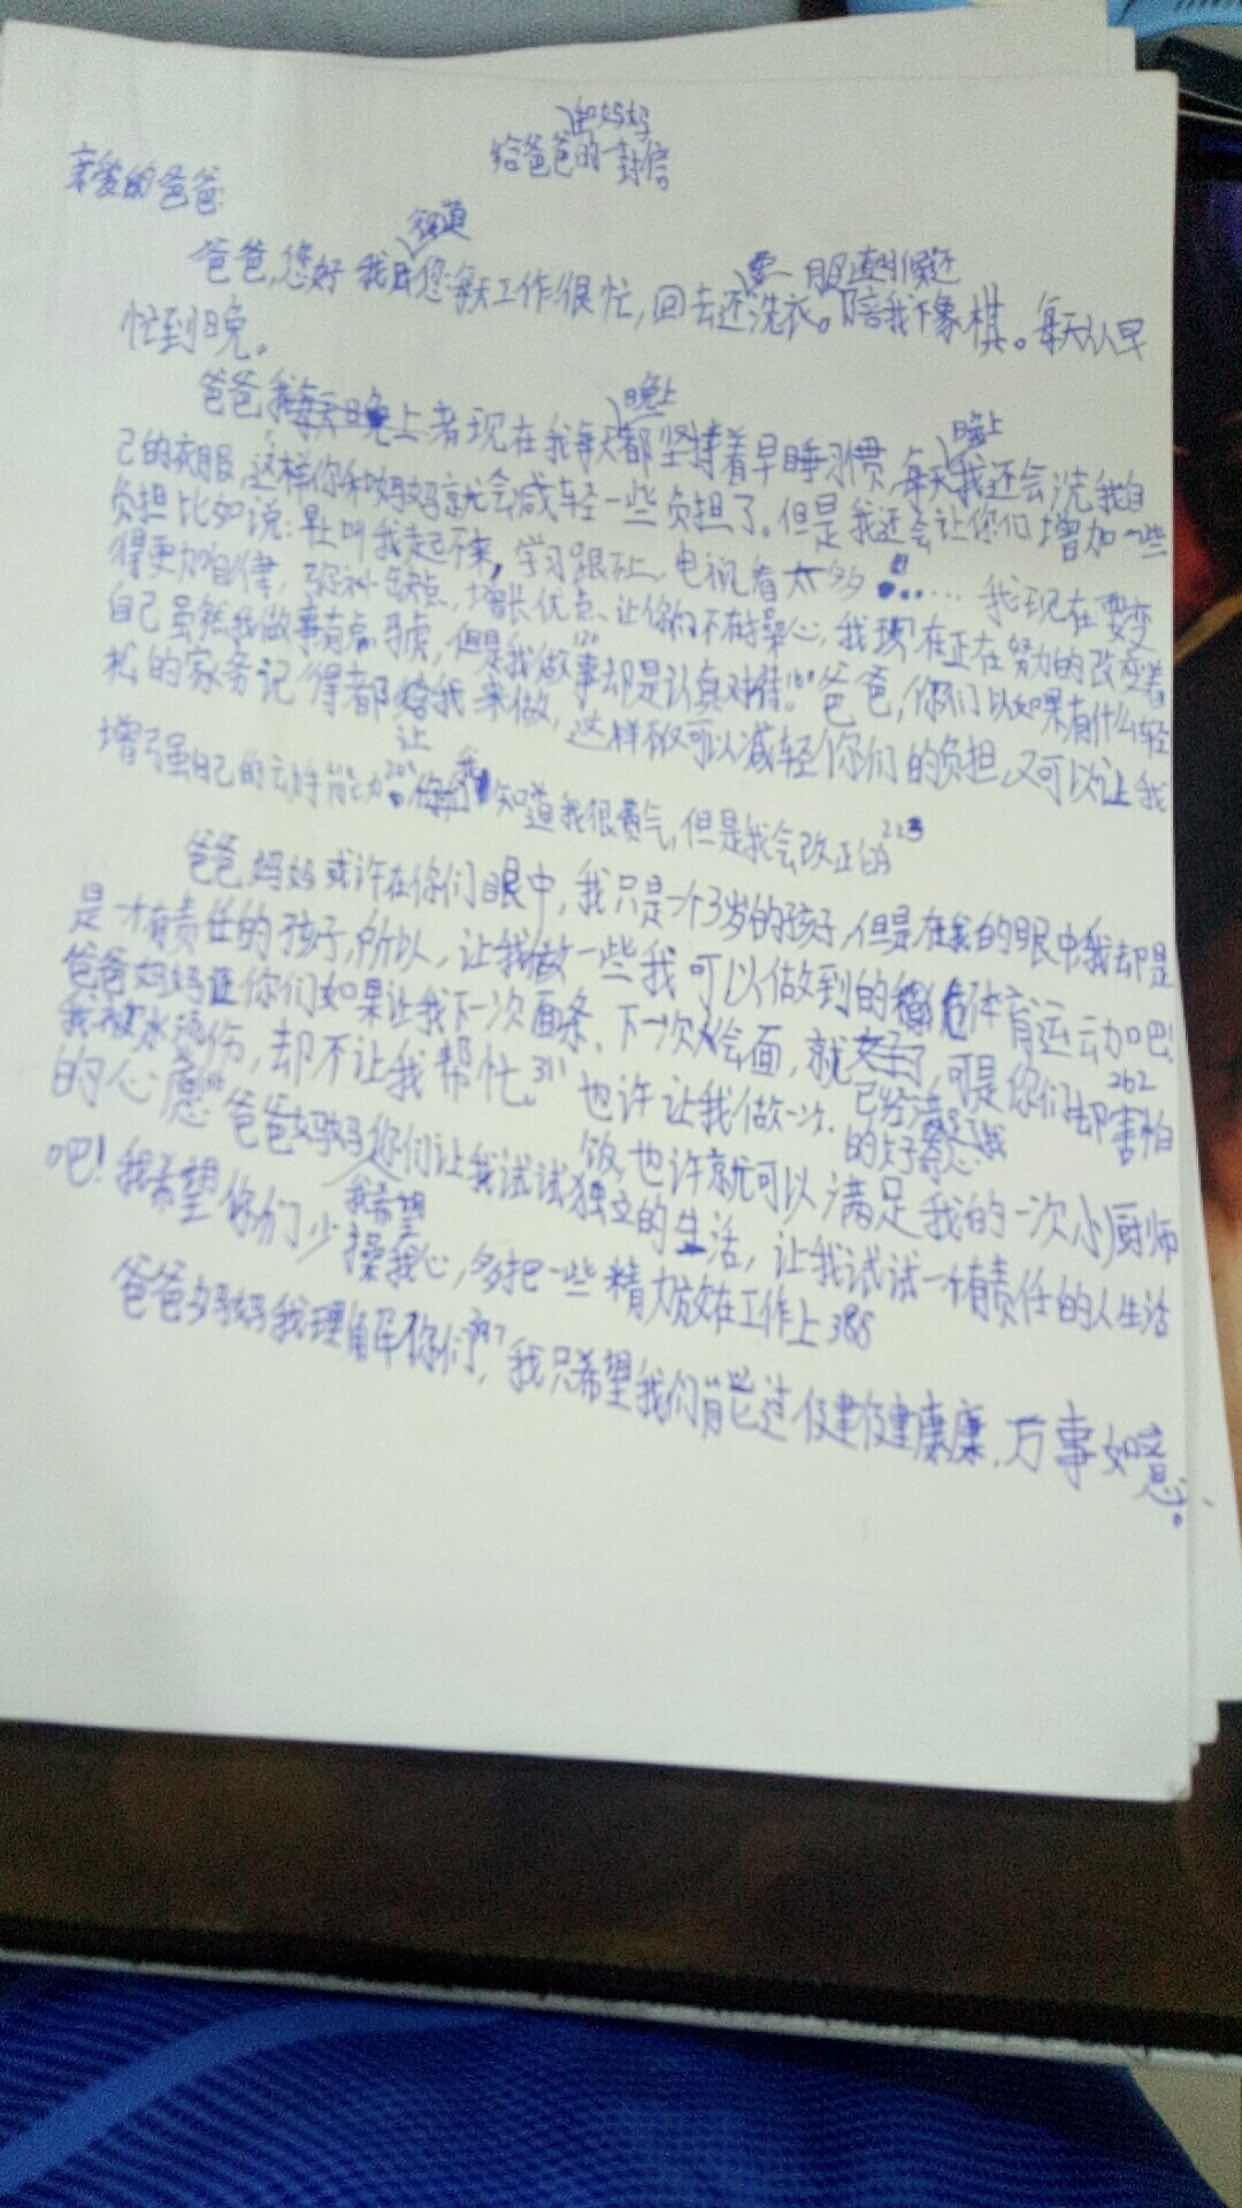 和妈妈
给爸爸的一封信
亲爱的爸爸:
知道
爸爸,您好 我 您每天工作很忙,回去还洗衣。陪我下象棋。每天从早
要 服 有时候还
忙到晚。
晚上
爸爸 我每天晚上 现在我每天都坚持着早睡习惯,每天我还会洗我自
晚上
己的衣服,这样你和妈妈就会减轻一些负担了。但是我还会让你们增加一些
负担比如说:早上叫我起不来,学习跟不上、电视看太多……我现在要变
得更加自律,弥补缺点,增长优点、让你们不在操心,我现在正在努力的改变着
自己虽然我做事有点马虎,但是我做事却是认真对待。爸爸,你们以如果有什么轻
120 180
松的家务记得都 我来做,这样不仅可以减轻你们的负担,又可以让我
让
增强自己的 能力。 我知道我很 气,但是我会改正的
201 223
爸爸妈妈或许在你们眼中,我只是一个13岁的孩子,但是在我的眼中我却是
是一个有责任的孩子,所以,让我做一些我可以做到的 体育运动吧!
爸爸妈妈 你们如果让我下一次面条、下一次 面,就 可是你们却害怕
262
我被水烫伤,却不让我帮忙。也许让我做一次 饭,也许就可以满足我的一次小厨师
311
已经满足我
的心愿。爸爸妈妈你们让我试试独立的生活,让我试试一个有责任的人生活
我希望
吧!我希望你们少操我心,多把一些精力放在工作上 388
爸爸妈妈我理解你们,我只希望我们能过健健康康,万事如意。